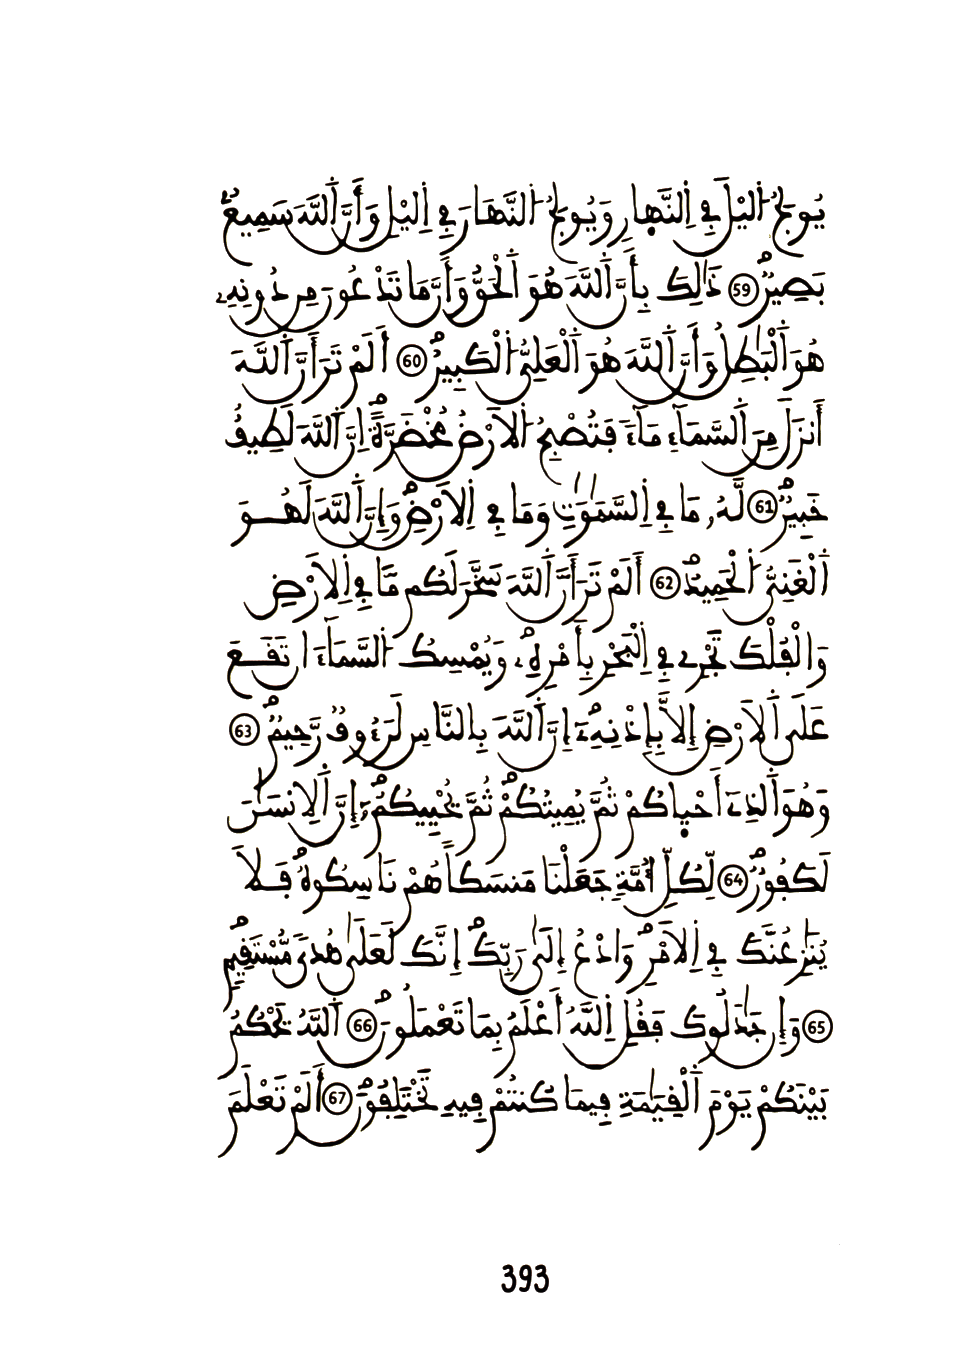 يُولِجُ اُ۬ليْلَ فِے اِ۬لنَّه۪ارِ وَيُولِجُ اُ۬لنَّهَارَ فِے اِ۬ليْلِ وَأَنَّ اَ۬للَّهَ سَمِيعُۢ
بَصِيرٞۖ 59 ذَٰلِكَ بِأَنَّ اَ۬للَّهَ هُوَ اَ۬لْحَقُّ وَأَنَّ مَا تَدْعُونَ مِن دُونِهِۦ
هُوَ اَ۬لْبَٰطِلُ وَأَنَّ اَ۬للَّهَ هُوَ اَ۬لْعَلِيُّ اُ۬لْكَبِيرُۖ 60 أَلَمْ تَرَ أَنَّ اَ۬للَّهَ
أَنزَلَ مِنَ اَ۬لسَّمَآءِ مَآءٗ فَتُصْبِحُ اُ۬لَارْضُ مُخْضَرَّةًۖ اِنَّ اَ۬للَّهَ لَطِيفٌ
خَبِيرٞۖ 61 لَّهُۥ مَا فِے اِ۬لسَّمَٰوَٰتِ وَمَا فِے اِ۬لَارْضِۖ وَإِنَّ اَ۬للَّهَ لَهُوَ
اَ۬لْغَنِيُّ اُ۬لْحَمِيدُۖ 62 أَلَمْ تَرَ أَنَّ اَ۬للَّهَ سَخَّرَ لَكُم مَّا فِے اِ۬لَارْضِ
وَالْفُلْكَ تَجْرِے فِے اِ۬لْبَحْرِ بِأَمْرِهِۦۖ وَيُمْسِكُ اُ۬لسَّمَآءَ اَن تَقَعَ
عَلَي اَ۬لَارْضِ إِلَّا بِإِذْنِهِۦٓۖ إِنَّ اَ۬للَّهَ بِالنَّاسِ لَرَءُوفٞ رَّحِيمٞۖ 63
وَهُوَ اَ۬لذِےٓ أَحْي۪اكُمْ ثُمَّ يُمِيتُكُمْ ثُمَّ يُحْيِيكُمُۥٓۖ إِنَّ اَ۬لِانسَٰنَ
لَكَفُورٞۖ 64 لِّكُلِّ أُمَّةٖ جَعَلْنَا مَنسَكاً هُمْ نَاسِكُوهُۖ فَلَا
يُنَٰزِعُنَّكَ فِے اِ۬لَامْرِۖ وَادْعُ إِلَىٰ رَبِّكَۖ إِنَّكَ لَعَلَىٰ هُديٗ مُّسْتَقِيمٖۖ
65 وَإِن جَٰدَلُوكَ فَقُلِ اِ۬للَّهُ أَعْلَمُ بِمَا تَعْمَلُونَۖ 66 اَ۬للَّهُ يَحْكُمُ
بَيْنَكُمْ يَوْمَ اَ۬لْقِيَٰمَةِ فِيمَا كُنتُمْ فِيهِ تَخْتَلِفُونَۖ 67 أَلَمْ تَعْلَمَ
393